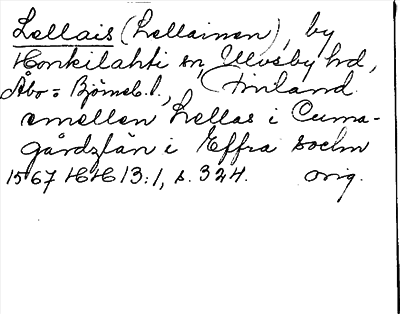 Lellais (Lellainen), by
Honkilahti sn, Ulvsby hd,
Åbo = Björneb. l., Finland
emellen Lellas i Cuma-
gårdzlän i Effra sochn
1567 HH 13:1, s. 324. orig.